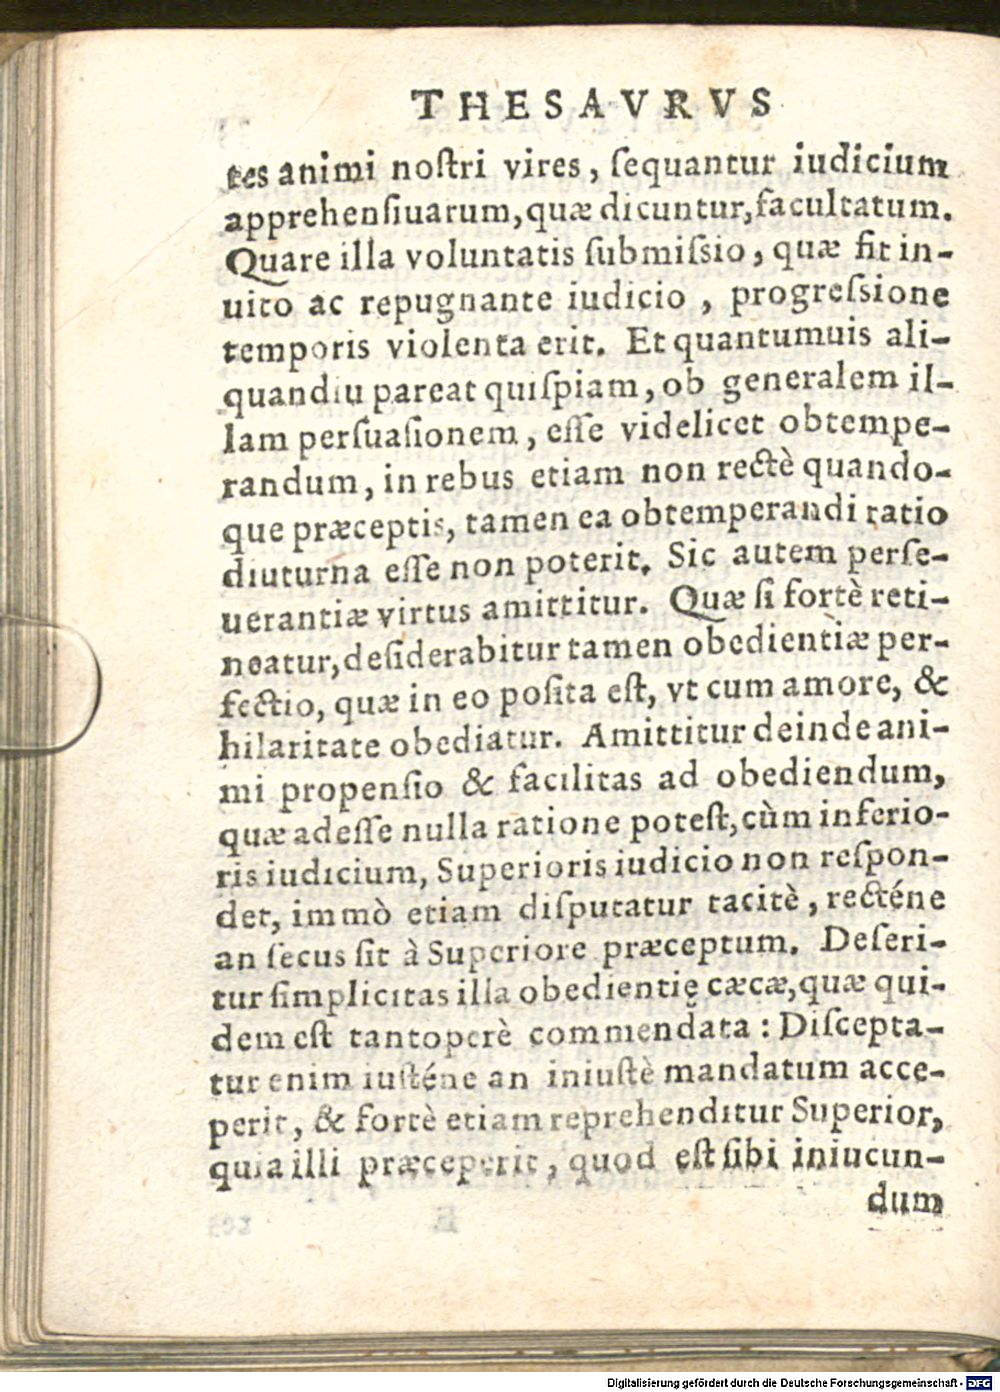 THESAVRVS
tes animi noſtri vires, ſequantur iudicium
apprehenſiuarum, quæ dicuntur, facultatum.
Quare illa voluntatis ſubmiſsio, quæ fit in-
uito ac repugnante iudicio, progreſsione
temporis violenta erit. Et quantumuis ali-
quandiu pareat quiſpiam, ob generalem il-
lam perſuaſionem, eſſe videlicet obtempe-
randum, in rebus etiam non rectè quando-
que præceptis, tamen ea obtemperandi ratio
diuturna eſſe non poterit. Sic autem perſe-
uerantiæ virtus amittitur. Quæ ſi fortè reti-
neatur, deſiderabitur tamen obedientiæ per-
fectio, quæ in eo poſita eſt, vt cum amore, &
hilaritate obediatur. Amittitur deinde ani-
mi propenſio & facilitas ad obediendum,
quæ adeſſe nulla ratione poteſt, cùm inferio-
ris iudicium, Superioris iudicio non reſpon-
det, immò etiam diſputatur tacitè, recténe
an ſecus ſit à Superiore præceptum. Deſeri-
tur ſimplicitas illa obedientię cæcæ, quæ qui-
dem eſt tantoperè commendata: Diſcepta-
tur enim iuſténe an iniuſtè mandatum acce-
perit, & fortè etiam reprehenditur Superior,
quia illi præceperit, quod eſt ſibi iniucun-
dum
Digitalisierung gefördert durch die Deutsche Forschungsgemeinschaft - DFG